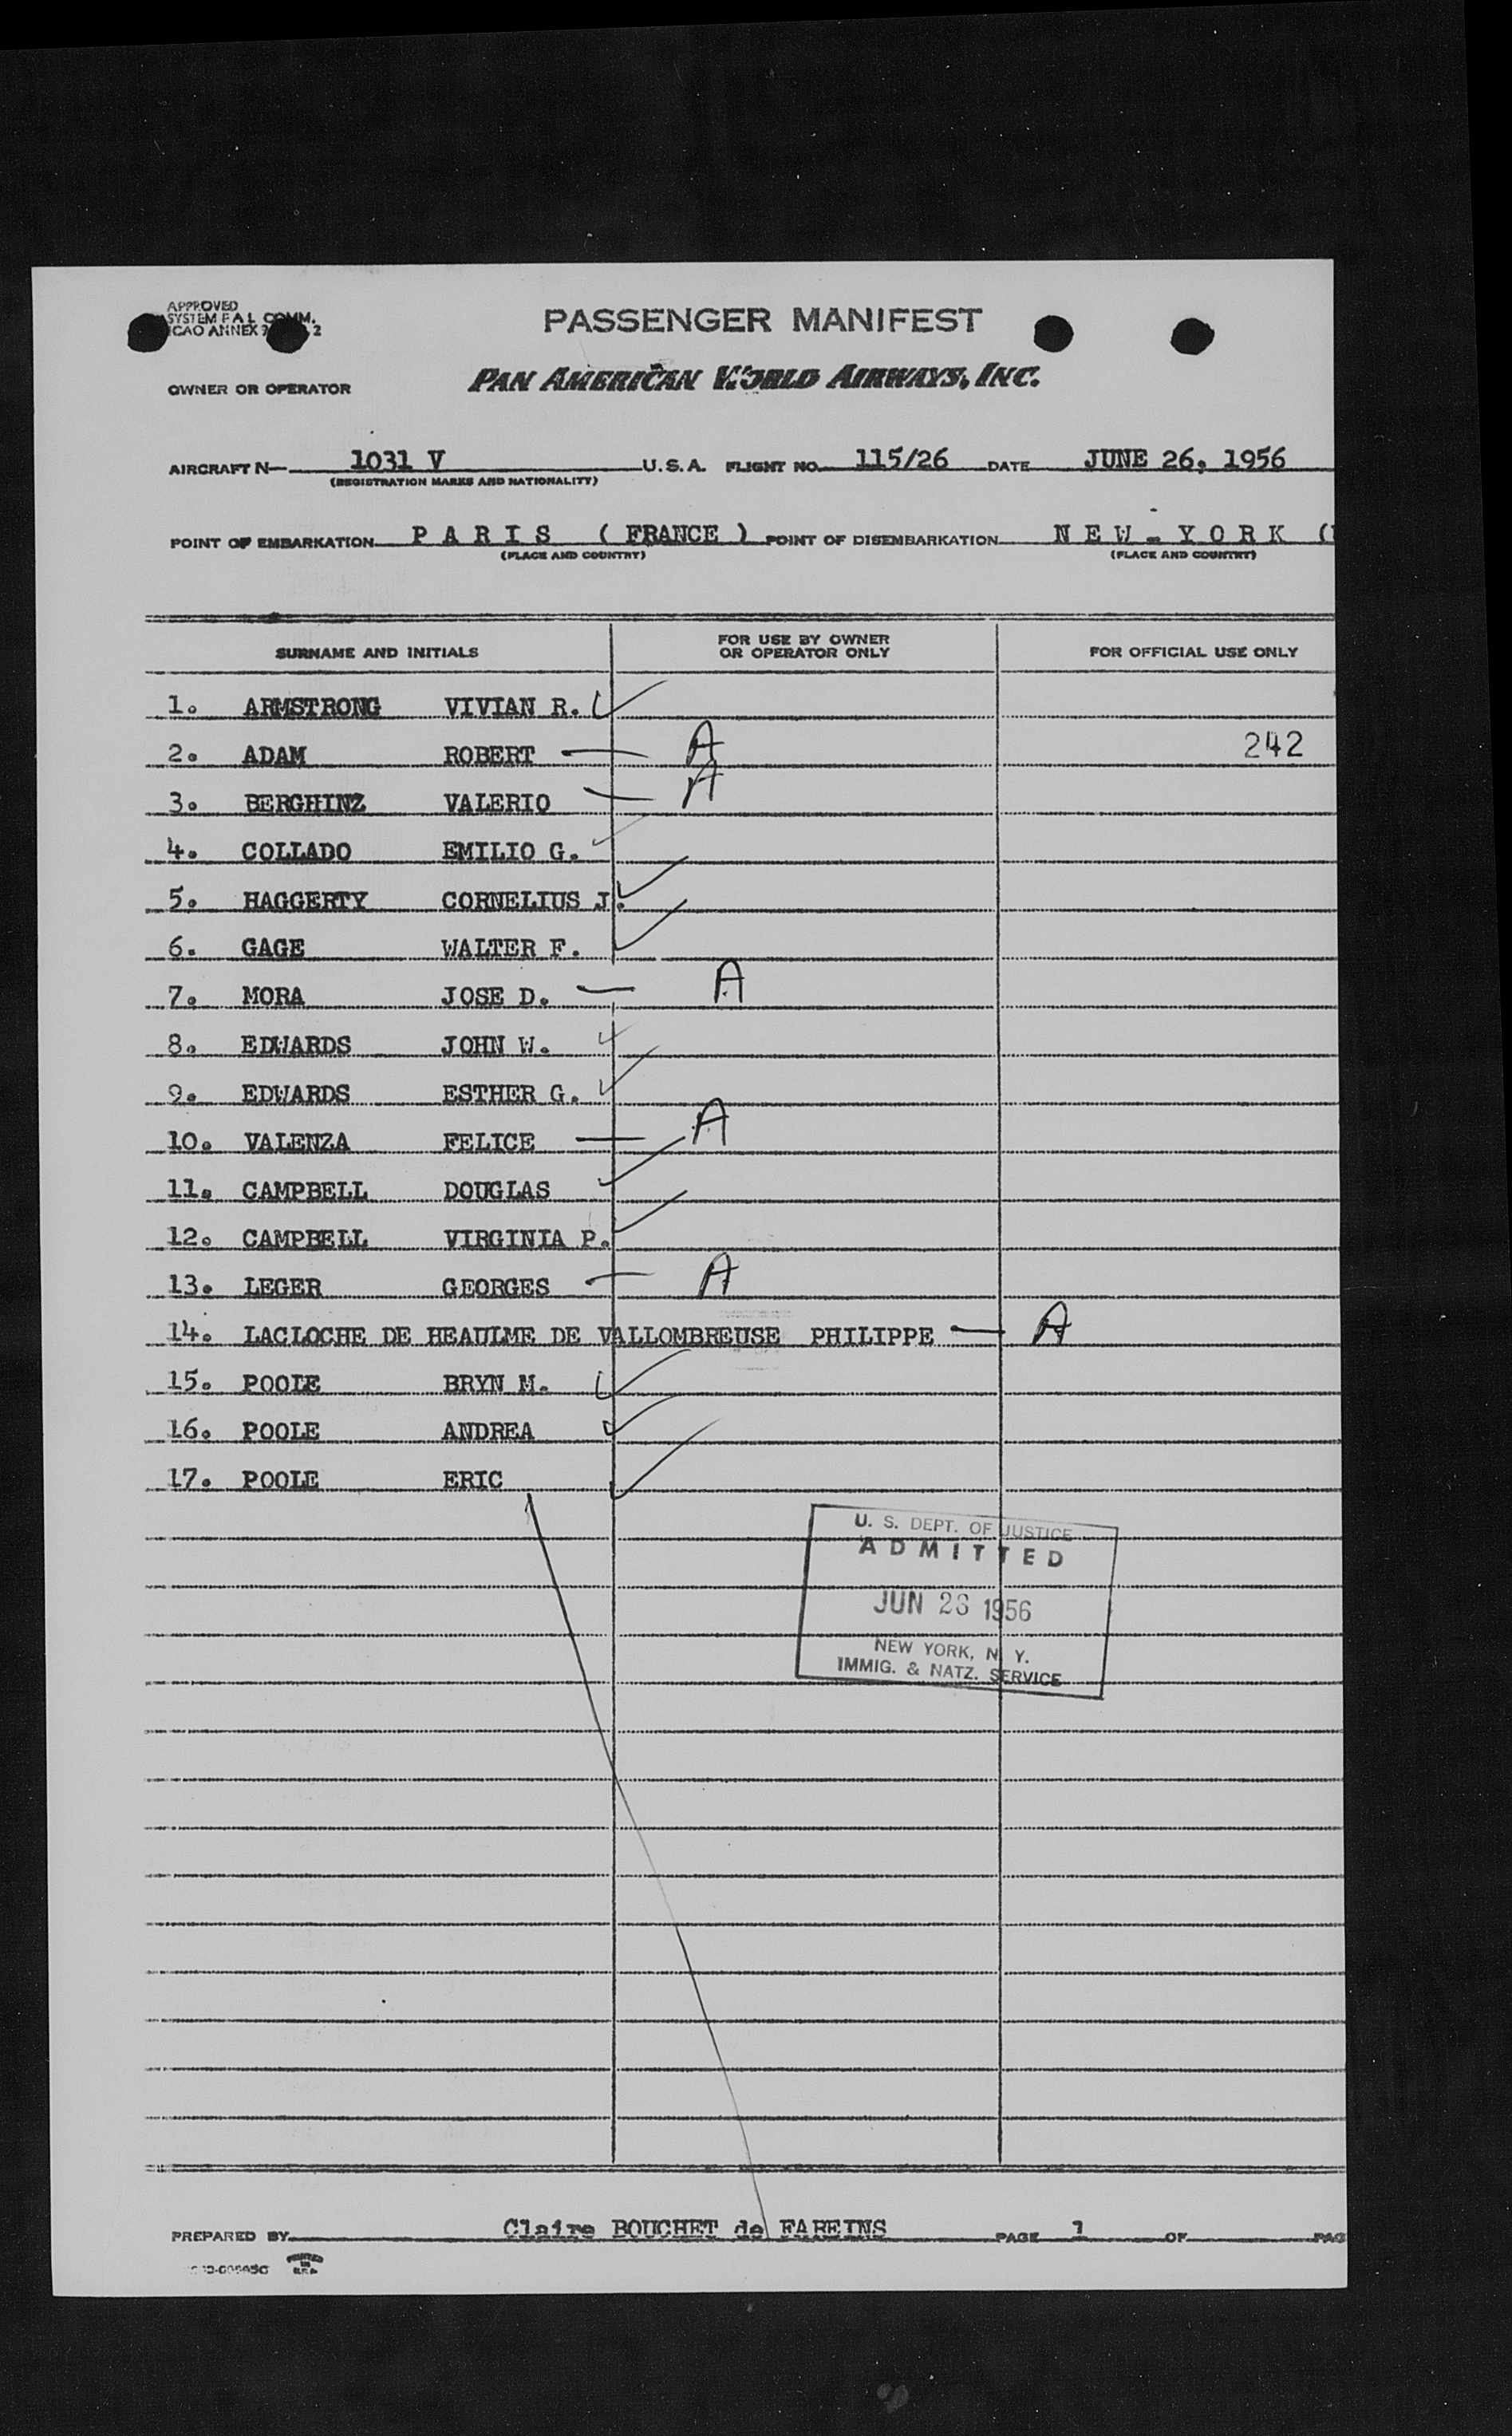 APPROVED
SYSTEM F A L COMM.
ICAO ANNEX 9 2
PASSENGER MANIFEST
OWNER OR OPERATOR PAN AMERICAN WORLD AIRWAYS, INC.
AIRCRAFT N— 1031 V U.S.A. FLIGHT NO. 115/26 DATE JUNE 26, 1956
(REGISTRATION MARKS AND NATIONALITY)
POINT OF EMBARKATION P A R I S ( FRANCE ) POINT OF DISEMBARKATION N E W - Y O R K (
(PLACE AND COUNTRY) (PLACE AND COUNTRY)
SURNAME AND INITIALS FOR USE BY OWNER OR OPERATOR ONLY FOR OFFICIAL USE ONLY
1. ARMSTRONG VIVIAN R.
2. ADAM ROBERT — A 242
3. BERGHINZ VALERIO — A
4. COLLADO EMILIO G.
5. HAGGERTY CORNELIUS J.
6. GAGE WALTER F.
7. MORA JOSE D. — A
8. EDWARDS JOHN W.
9. EDWARDS ESTHER G.
10. VALENZA FELICE — A
11. CAMPBELL DOUGLAS
12. CAMPBELL VIRGINIA P.
13. LEGER GEORGES — A
14. LACLOCHE DE HEAULME DE VALLOMBREUSE PHILIPPE — A
15. POOLE BRYN M.
16. POOLE ANDREA
17. POOLE ERIC
U. S. DEPT. OF JUSTICE
ADMITTED
JUN 26 1956
NEW YORK, N. Y.
IMMIG. & NATZ. SERVICE
PREPARED BY Claire BOUCHET de FAREINS PAGE 1 OF PAG
PRINTED IN U.S.A.